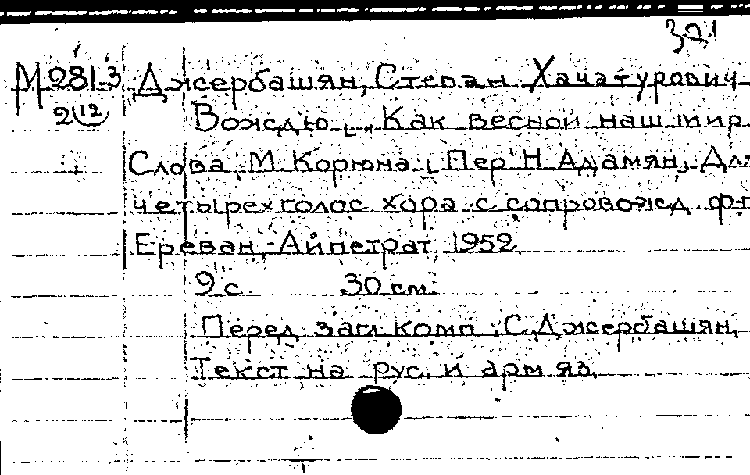 321
М 281-3 Джербашян, Степан Хачатурович
2(12) Вождю. „Как весной наш мир
Слова М. Корюна. Пер. Н. Адамян. Для
четырехголос. хора с сопровожд. ф-п
Ереван, Айпетрат, 1952
9 с. 30 см.
Перед загл. комп.: С. Джербашян,
Текст на рус. и арм. яз.